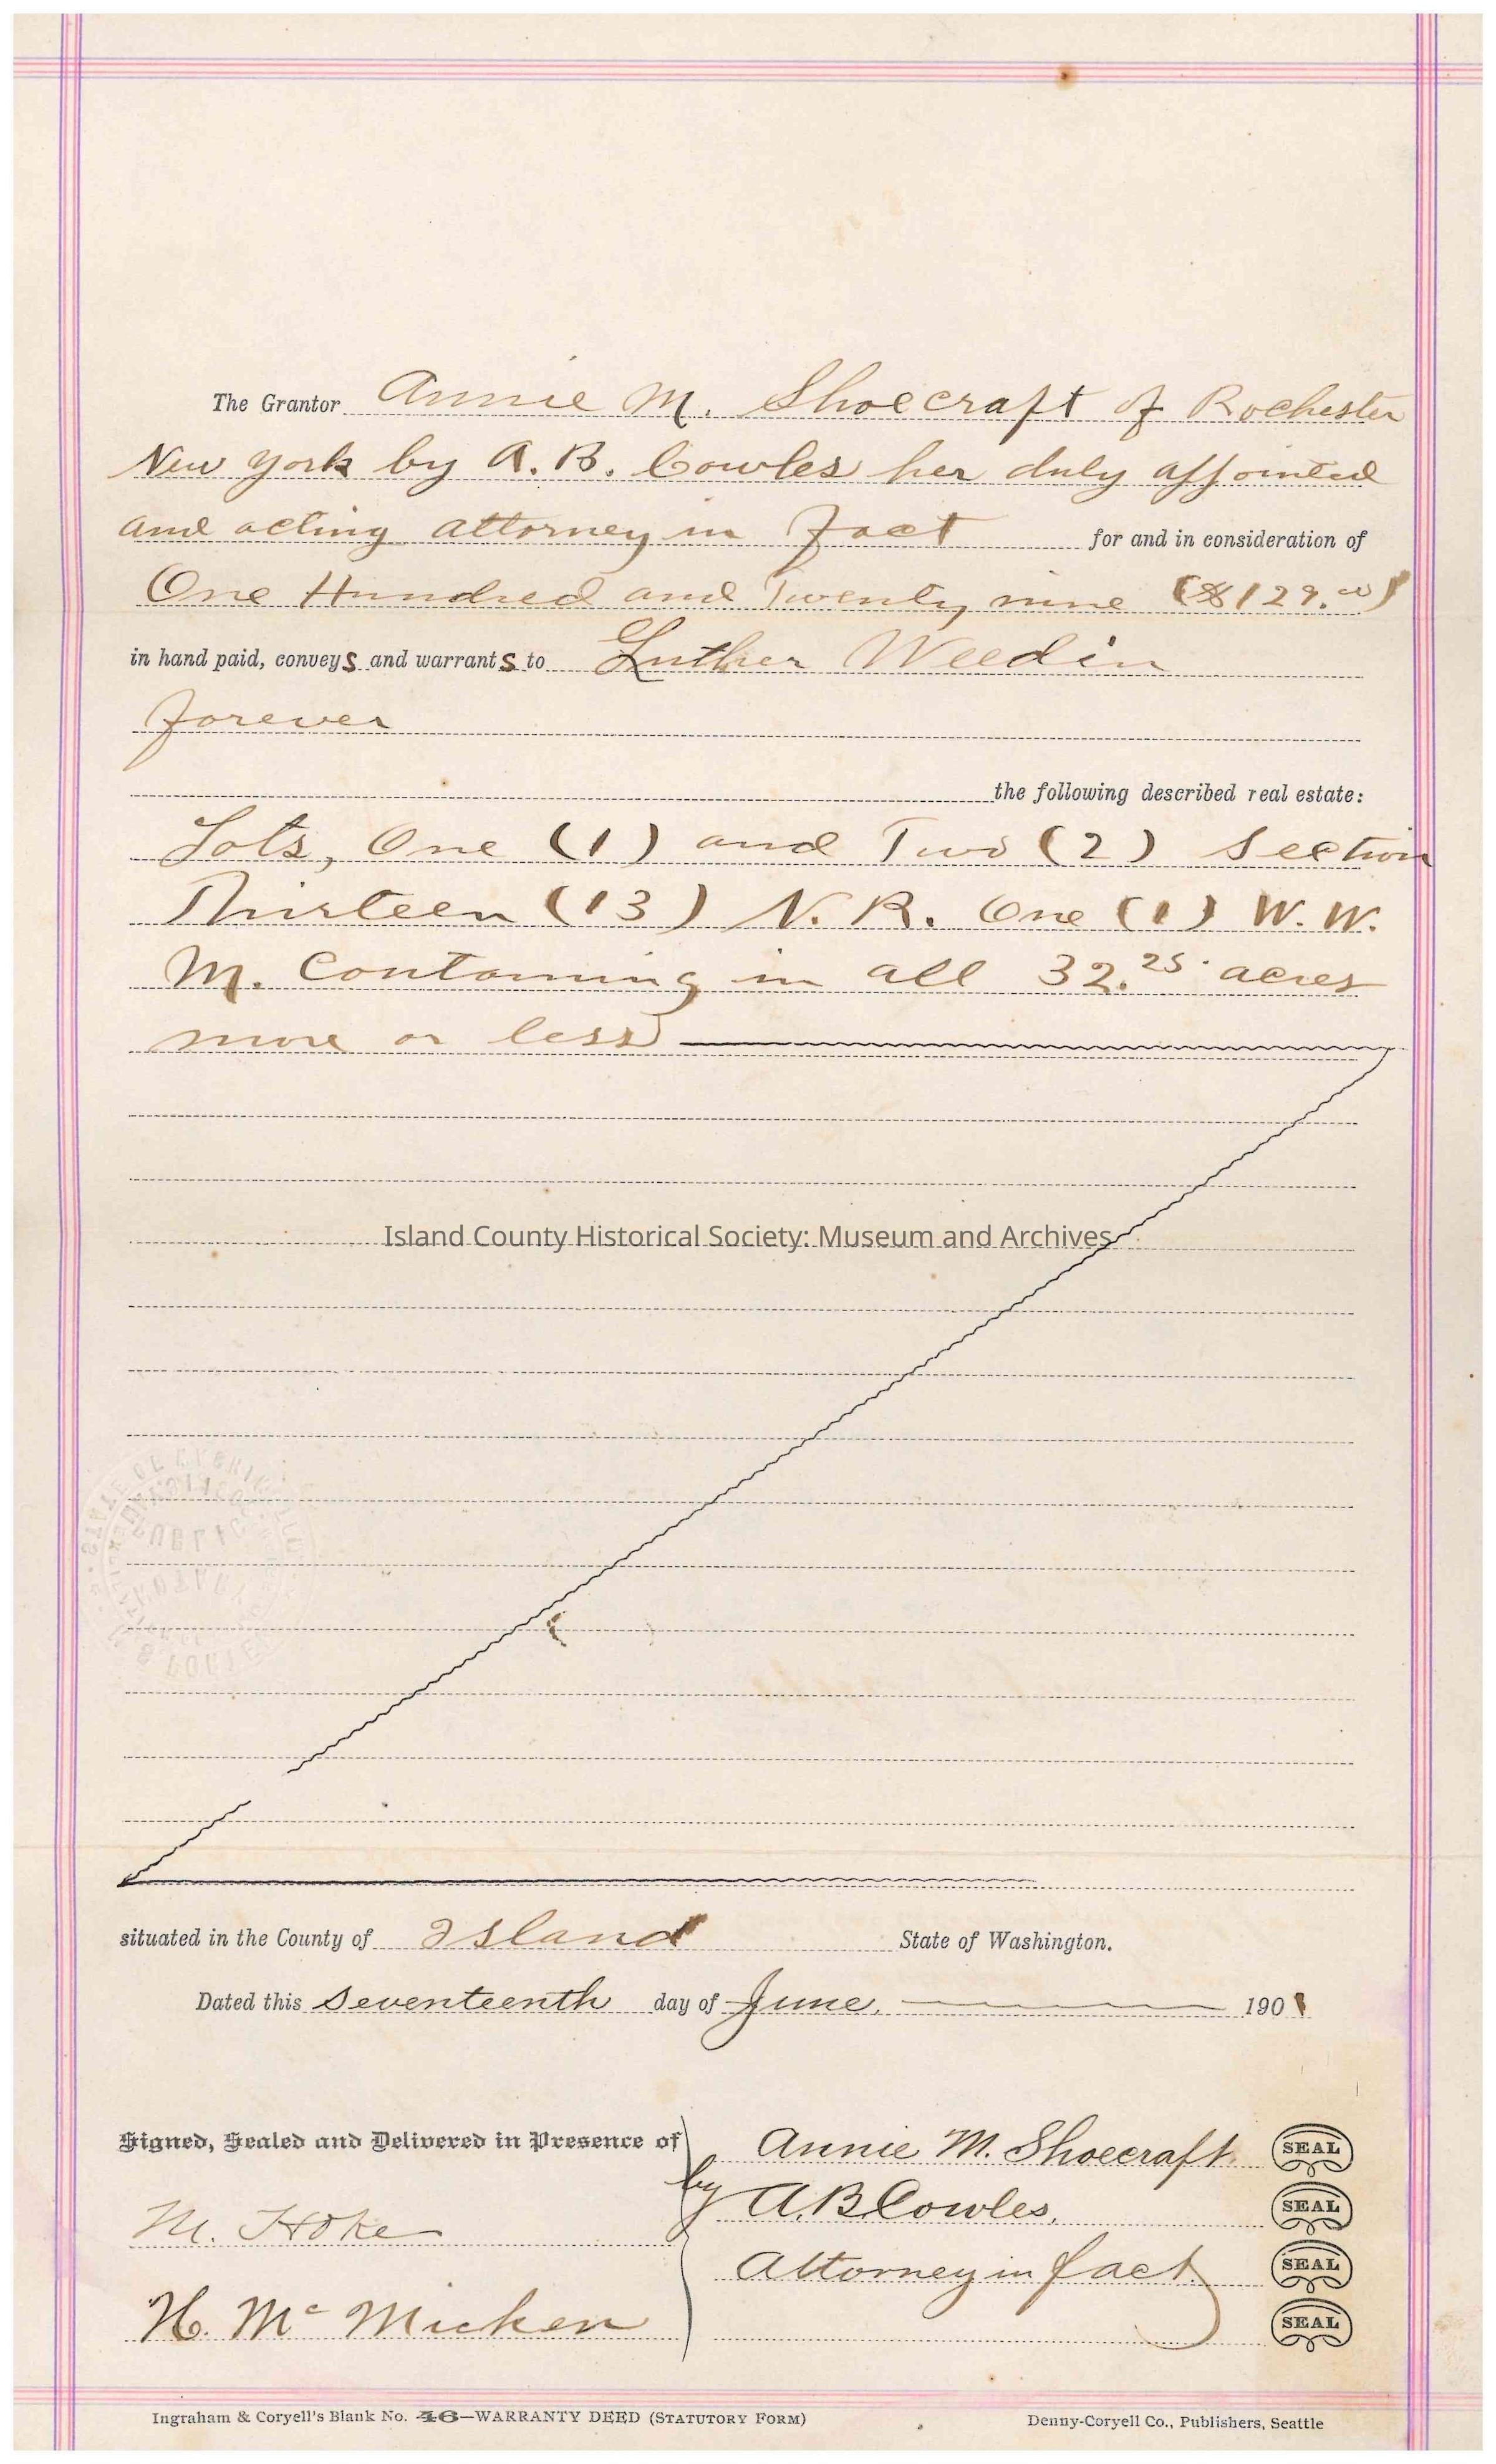 The Grantor Annie M. Shoecraft of Rochester
New York by A. B. Cowles her duly appointed
and acting attorney in fact for and in consideration of
One Hundred and Twenty nine ($129.00)
in hand paid, conveys and warrants to Luther Weedin
forever
the following described real estate:
Lots, One (1) and Two (2) Section
Thirteen (13) N. R. One (1) W. W.
M. Containing in all 32.25 acres
more or less
Island County Historical Society: Museum and Archives
situated in the County of Island State of Washington.
Dated this Seventeenth day of June, 1901
Signed, Sealed and Delivered in Presence of
Annie M. Shoecraft SEAL
by A. B. Cowles, SEAL
M. Hoke
Attorney in fact SEAL
H. Mc Micken SEAL
Ingraham & Coryell's Blank No. 46—WARRANTY DEED (STATUTORY FORM) Denny-Coryell Co., Publishers, Seattle